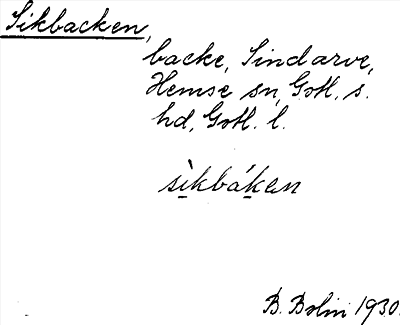 Sikbacken,
backe, Sindarve,
Hemse sn, Gotl. s.
hd, Gotl. l.
sìkbáken
B. Bolin 1930.